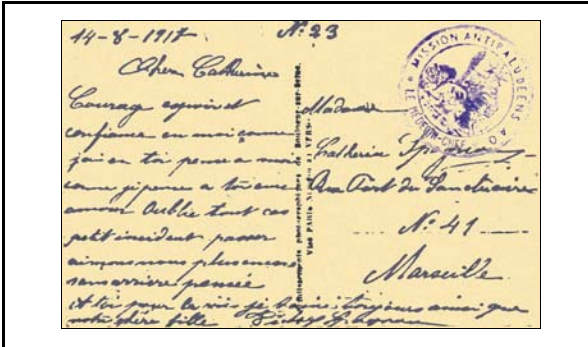 14-8-1917 N: 23
Cher Catherine
Courage espoir et
confiance en moi comme
jai en toi pense a moi
comme je pense a toi avec
amour Oublie tout ces
petit incident passer
aimons nous plus encore
sans arriere pensée
A toi pour la vie je taime toujours ainsi que
notre chère fille
MISSION ANTIPALUDEENS A.O.
LE MEDECIN-CHEF
Madame
Catherine
Rue Fort du Sanctuaire
N: 41
Marseille